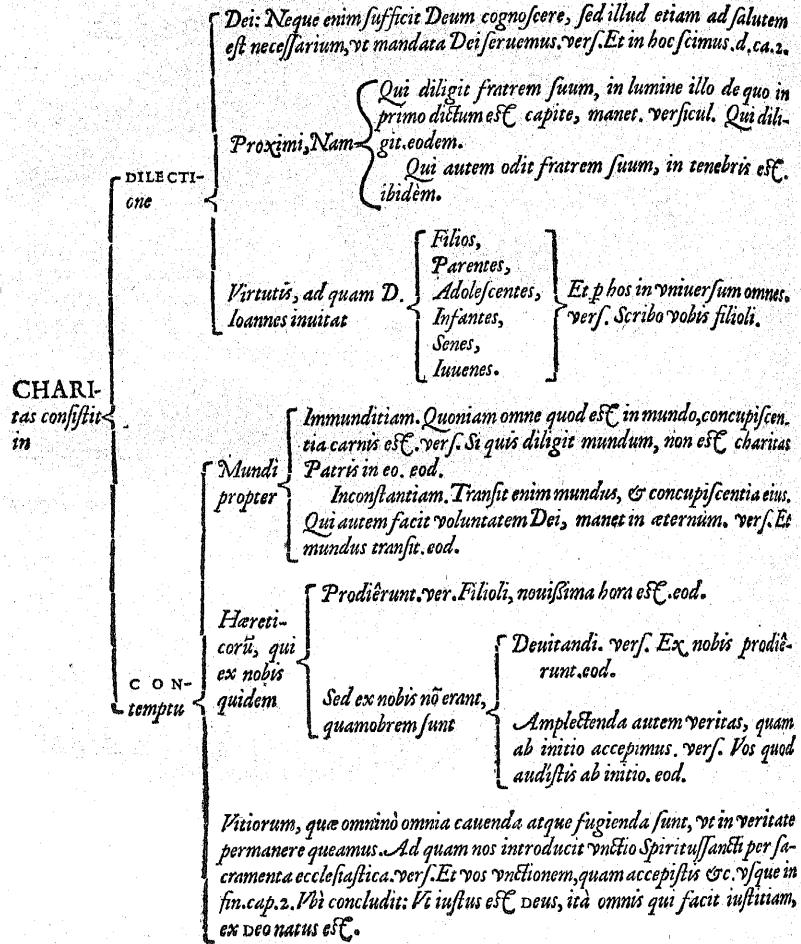 Dei: Neque enim ſufficit Deum cognoſcere, ſed illud etiam ad ſalutem
eſt neceſſarium, vt mandata Dei ſeruemus. verſ. Et in hoc ſcimus. d. ca. 2.
Proximi, Nam
Qui diligit fratrem ſuum, in lumine illo de quo in
primo dictum eſt capite, manet. verſicul. Qui dili-
git. eodem.
Qui autem odit fratrem ſuum, in tenebris eſt.
ibidèm.
DILECTI-
one
Virtutis, ad quam D.
Ioannes inuitat
Filios,
Parentes,
Adoleſcentes,
Infantes,
Senes,
Iuuenes.
Et ꝑ hos in vniuerſum omnes.
verſ. Scribo vobis filioli.
CHARI-
tas conſiſtit
in
Mundi
propter
Immunditiam. Quoniam omne quod eſt in mundo, concupiſcen-
tia carnis eſt. verſ. Si quis diligit mundum, non eſt charitas
Patris in eo. eod.
Inconſtantiam. Tranſit enim mundus, & concupiſcentia eius.
Qui autem facit voluntatem Dei, manet in æternùm. verſ. Et
mundus tranſit. eod.
CON-
temptu
Hæreti-
corũ, qui
ex nobis
quidem
Prodiêrunt. ver. Filioli, nouißima hora eſt. eod.
Sed ex nobis nõ erant,
quamobrem ſunt
Deuitandi. verſ. Ex nobis prodiê-
runt. eod.
Amplectenda autem veritas, quam
ab initio accepimus. verſ. Vos quod
audiſtis ab initio. eod.
Vitiorum, quæ omninò omnia cauenda atque fugienda ſunt, vt in veritate
permanere queamus. Ad quam nos introducit vnctio Spirituſſancti per ſa-
cramenta eccleſiaſtica. verſ. Et vos vnctionem, quam accepiſtis &c. vſque in
fin. cap. 2. Vbi concludit: Vt iuſtus eſt DEUS, ità omnis qui facit iuſtitiam,
ex DEO natus eſt.